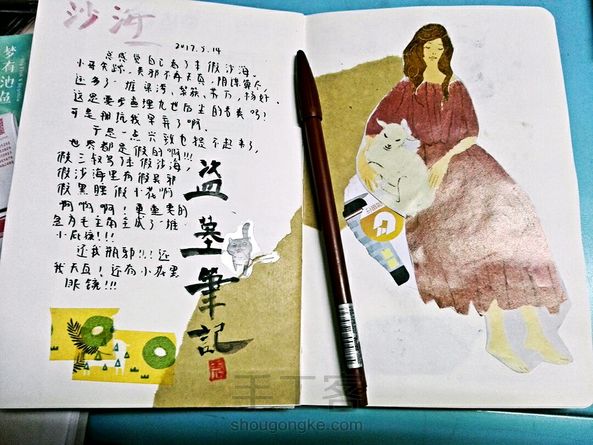 沙海
2017.5.14
总感觉自己看了本假沙海。
小哥失踪,吴邪不再天真,阴谋算尽,
还多了一堆梁湾、黎簇、苏万、杨好。
这是要步盗墓九 后尘的节奏吗?
可是 坑我果弃了啊。
于是一点兴致也提不起来了,
都是假的啊!!!
假三叔写了本假沙海,
假沙海里有假吴邪
假黑 假小花啊
啊啊啊!更重要的
是为毛主角变成了一堆
小屁孩!!!
还我瓶邪!!!还
我天真!还有小花黑
眼镜!!!
盗墓筆記
梦有池鱼
手工客
shougongke.com